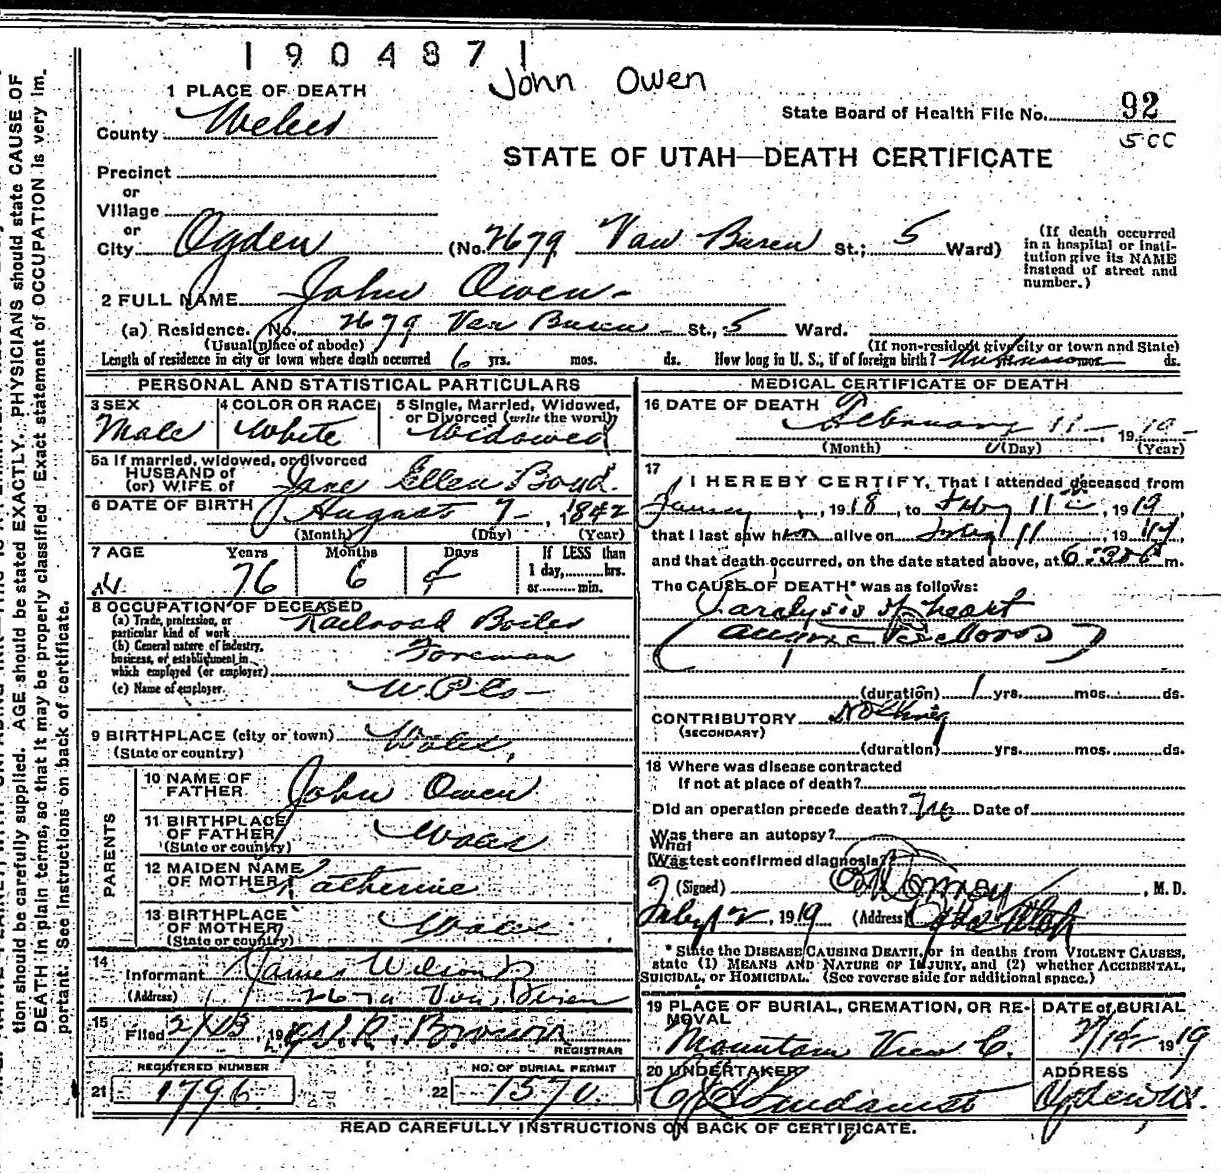 1904871
John Owen
1 PLACE OF DEATH
State Board of Health File No. 92
County Weber
5 CC
STATE OF UTAH—DEATH CERTIFICATE
Precinct
or
Village
or
City Ogden (No. 2679 Van Buren St.; 5 Ward)
(If death occurred in a hospital or insti-
tution give its NAME
instead of street and
number.)
2 FULL NAME John Owen
(a) Residence. No. 2679 Van Buren St., 5 Ward.
(Usual place of abode) (If non-resident give city or town and State)
Length of residence in city or town where death occurred 6 yrs. mos. ds. How long in U. S., if of foreign birth? mos. ds.
PERSONAL AND STATISTICAL PARTICULARS
3 SEX Male
4 COLOR OR RACE White
5 Single, Married, Widowed,
or Divorced (write the word)
Widowed
5a If married, widowed, or divorced
HUSBAND of
(or) WIFE of Jane Ellen Boyd.
6 DATE OF BIRTH August 7, 1842
(Month) (Day) (Year)
7 AGE Years Months Days If LESS than
1 day, hrs.
or min.
76 6 4
8 OCCUPATION OF DECEASED
(a) Trade, profession, or
particular kind of work Railroad Boiler
(b) General nature of industry,
business, or establishment in
which employed (or employer) Foreman
(c) Name of employer
9 BIRTHPLACE (city or town) Wales,
(State or country)
PARENTS
10 NAME OF
FATHER John Owen
11 BIRTHPLACE
OF FATHER Wales
(State or country)
12 MAIDEN NAME
OF MOTHER Katherine
13 BIRTHPLACE
OF MOTHER Wales
(State or country)
14
Informant James Wilson
(Address) Van Buren
15
Filed 2/13, 19 Brown
REGISTRAR
REGISTERED NUMBER
21 1796
NO. OF BURIAL PERMIT
22 1570
MEDICAL CERTIFICATE OF DEATH
16 DATE OF DEATH
February 11, 1919
(Month) (Day) (Year)
17
I HEREBY CERTIFY, That I attended deceased from
, 1918, to Feby 11th, 1919,
that I last saw him alive on Feby 11, 1919,
and that death occurred, on the date stated above, at m.
The CAUSE OF DEATH* was as follows:
Paralysis of heart
(duration) 1 yrs. mos. ds.
CONTRIBUTORY Nothing
(SECONDARY)
(duration) yrs. mos. ds.
18 Where was disease contracted
If not at place of death?
Did an operation precede death? No Date of
Was there an autopsy?
What
Was test confirmed diagnosis?
(Signed) , M. D.
Feby 12, 1919 (Address) Ogden Utah
* State the DISEASE CAUSING DEATH, or in deaths from VIOLENT CAUSES,
state (1) MEANS AND NATURE OF INJURY, and (2) whether ACCIDENTAL,
SUICIDAL, or HOMICIDAL. (See reverse side for additional space.)
19 PLACE OF BURIAL, CREMATION, OR RE-
MOVAL
Mountain View C.
DATE of BURIAL
2/14 1919
20 UNDERTAKER
ADDRESS
READ CAREFULLY INSTRUCTIONS ON BACK OF CERTIFICATE.
tion should be carefully supplied. AGE should be stated EXACTLY. PHYSICIANS should state CAUSE OF
DEATH in plain terms, so that it may be properly classified. Exact statement of OCCUPATION is very im-
portant. See Instructions on back of certificate.